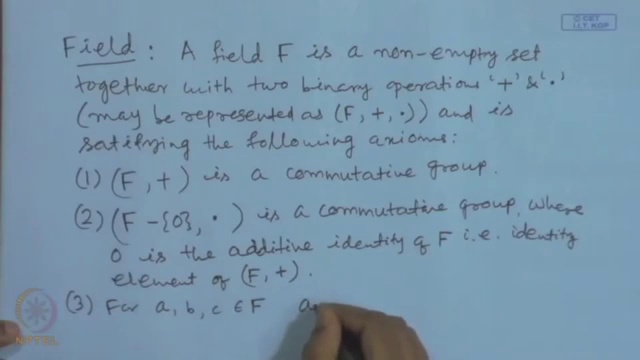 © CET
I.I.T. KGP
Field : A field F is a non-empty set
together with two binary operations '+' & '.'
(may be represented as (F, +, .)) and is
satisfying the following axioms:
(1) (F, +) is a commutative group.
(2) (F - {0}, .) is a commutative group, where
0 is the additive identity of F i.e. identity
element of (F, +).
(3) For a, b, c ∈ F
NPTEL